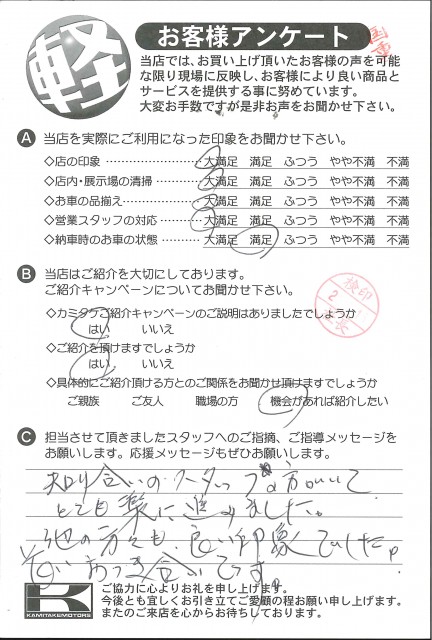 軽
お客様アンケート
当店では、お買い上げ頂いたお客様の声を可能
な限り現場に反映し、お客様により良い商品と
サービスを提供する事に努めています。
大変お手数ですが是非お声をお聞かせ下さい。
A 当店を実際にご利用になった印象をお聞かせ下さい。
◇店の印象 ………………… 大満足 満足 ふつう やや不満 不満
◇店内・展示場の清掃 ………… 大満足 満足 ふつう やや不満 不満
◇お車の品揃え ……………… 大満足 満足 ふつう やや不満 不満
◇営業スタッフの対応 ………… 大満足 満足 ふつう やや不満 不満
◇納車時のお車の状態 ………… 大満足 満足 ふつう やや不満 不満
B 当店はご紹介を大切にしております。
ご紹介キャンペーンについてお聞かせ下さい。
検印
2
◇カミタケご紹介キャンペーンのご説明はありましたでしょうか
はい いいえ
◇ご紹介を頂けますでしょうか
はい いいえ
◇具体的にご紹介頂ける方とのご関係をお聞かせ頂けますでしょうか
ご親族 ご友人 職場の方 機会があれば紹介したい
C 担当させて頂きましたスタッフへのご指摘、ご指導メッセージを
お願いします。応援メッセージもぜひお願いします。
知り合いのスタッフの方がいて
とても楽に進みました。
他の方々も良い印象でした。
K
KAMITAKEMOTORS
ご協力に心よりお礼を申し上げます。
今後とも宜しくお引き立てご愛顧の程お願い申し上げます。
またのご来店を心からお待ちしております。